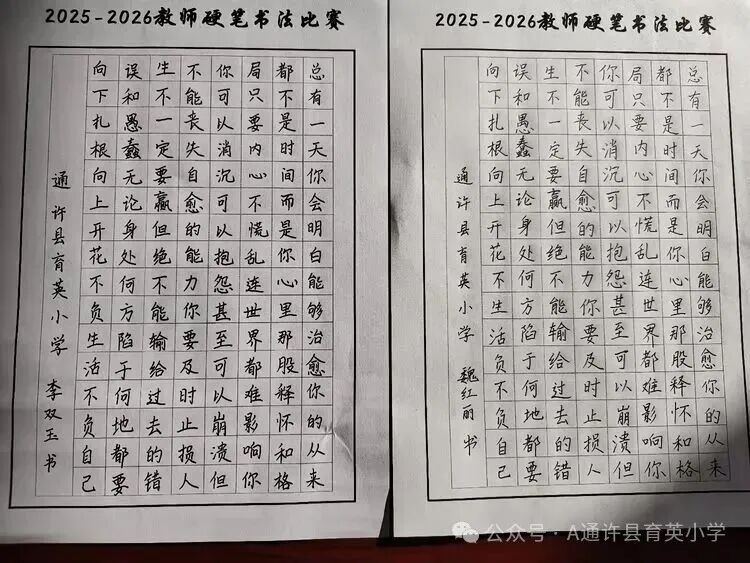 2025-2026教师硬笔书法比赛
总有一天你会明白能够治愈你的从来
都不是时间而是你心里那股释怀和格
局只要内心不慌乱连世界都难影响你
你可以消沉可以抱怨甚至可以崩溃但
不能丧失自愈的能力你要及时止损人
生不一定要赢但绝不能输给过去的错
误和愚蠢无论身处何方陷于何地都要
向下扎根向上开花不负生活不负自己
通许县育英小学 李双玉书
2025-2026教师硬笔书法比赛
总有一天你会明白能够治愈你的从来
都不是时间而是你心里那股释怀和格
局只要内心不慌乱连世界都难影响你
你可以消沉可以抱怨甚至可以崩溃但
不能丧失自愈的能力你要及时止损人
生不一定要赢但绝不能输给过去的错
误和愚蠢无论身处何方陷于何地都要
向下扎根向上开花不生活负不负自己
通许县育英小学 魏红丽书
公众号·A通许县育英小学